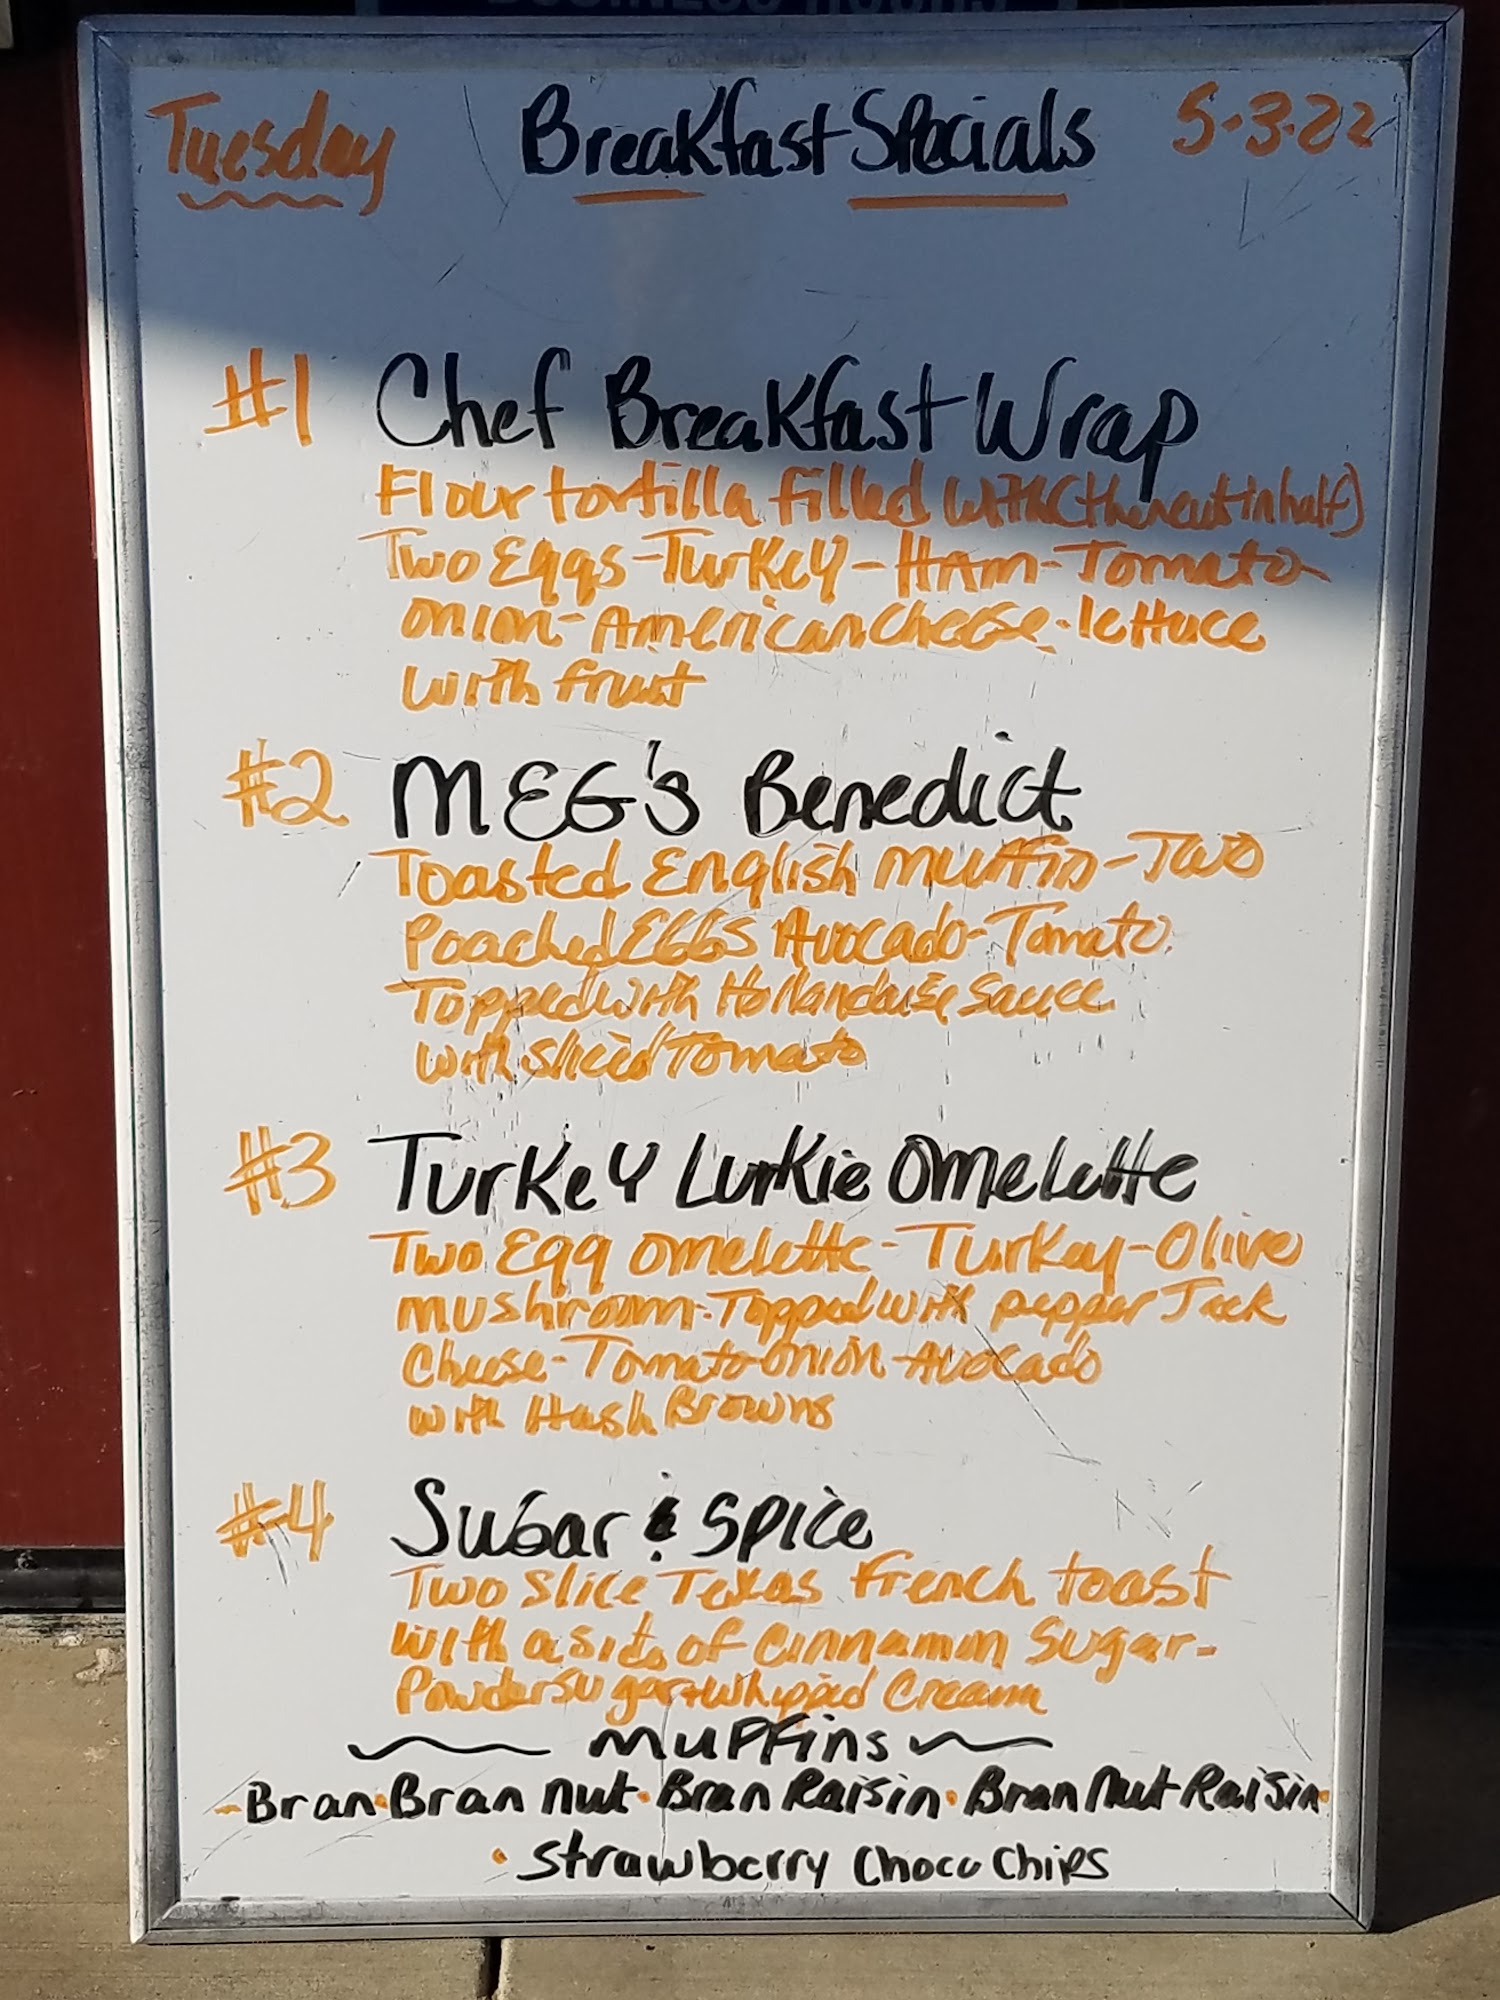 BUSINESS HOURS
Tuesday Breakfast Specials 5.3.22
#1 Chef Breakfast Wrap
Flour tortilla filled with (then cut in half)
Two Eggs - Turkey - HAm - Tomato
onion - American cheese - lettuce
with fruit
#2 MEG's Benedict
Toasted English muffin - Two
Poached EGGS Avocado - Tomato.
Topped with Hollandaise Sauce
with sliced Tomato
#3 Turkey Lurkie Omelette
Two Egg omelette - Turkey - Olive
mushroom - Topped with pepper Jack
Cheese - Tomato - onion - Avocado
with Hash Browns
#4 Sugar & Spice
Two Slice Texas French toast
with a side of Cinnamon Sugar -
Powder sugar + whipped Cream
Muffins
- Bran • Bran nut • Bran Raisin • Bran Nut Raisin •
• Strawberry Choco Chips